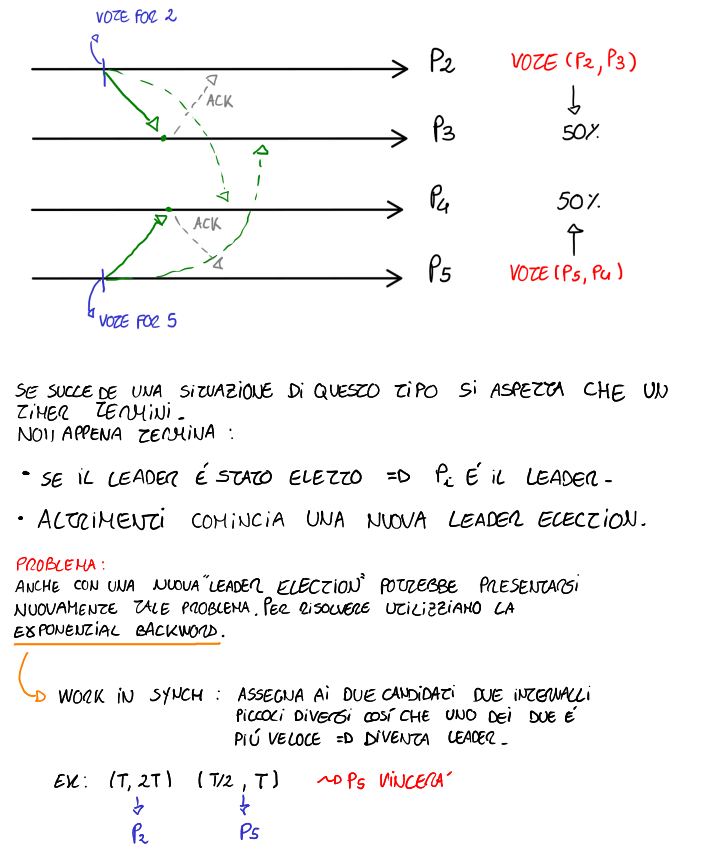 VOTE FOR 2
P2
VOTE (P2, P3)
ACK
P3
50%
P4
50%
ACK
P5
VOTE (P5, P4)
VOTE FOR 5
SE SUCCEDE UNA SITUAZIONE DI QUESTO TIPO SI ASPETTA CHE UN
TIMER TERMINI.
NON APPENA TERMINA :
• SE IL LEADER É STATO ELETTO => Pi É IL LEADER.
• ALTRIMENTI COMINCIA UNA NUOVA LEADER ELECTION.
PROBLEMA:
ANCHE CON UNA NUOVA "LEADER ELECTION" POTREBBE PRESENTARSI
NUOVAMENTE TALE PROBLEMA. PER RISOLVERE UTILIZZIAMO LA
EXPONENTIAL BACKWORD.
WORK IN SYNCH : ASSEGNA AI DUE CANDIDATI DUE INTERVALLI
PICCOLI DIVERSI COSÍ CHE UNO DEI DUE É
PIÚ VELOCE => DIVENTA LEADER.
EX: (T, 2T) (T/2, T) ~> P5 VINCERA'
P2 P5